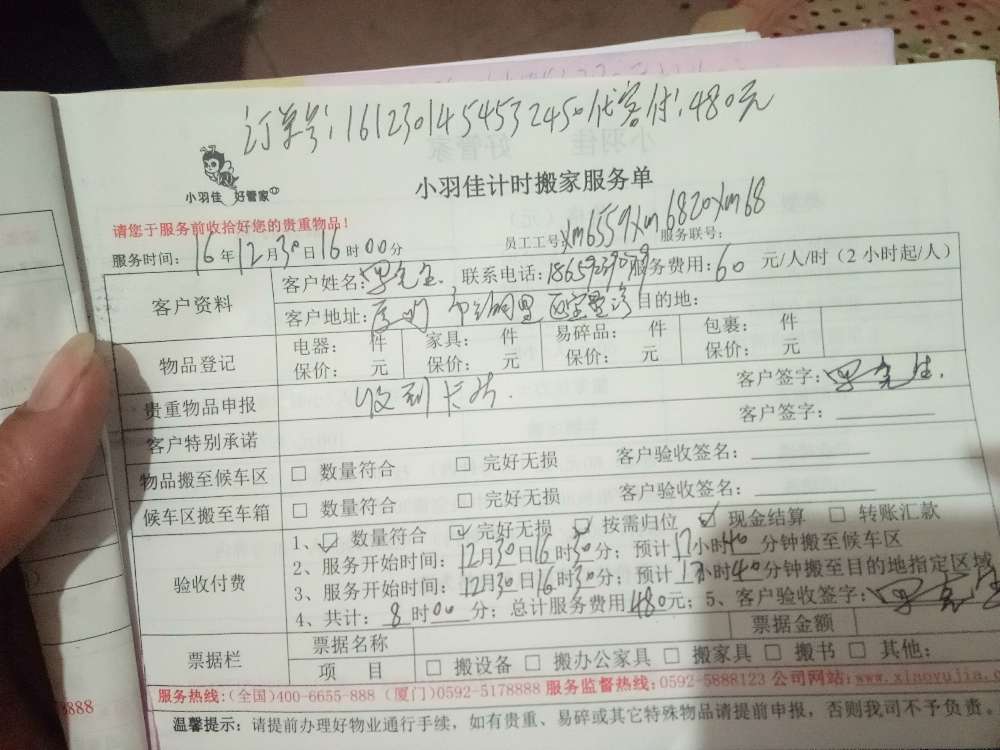 订单号:1612301454532450代客付:480元
小羽佳 好管家
小羽佳计时搬家服务单
请您于服务前收拾好您的贵重物品!
员工工号:xm6559xm6820xm68 服务联号:
服务时间: 16年12月30日16时00分
客户资料 客户姓名: 先生. 联系电话: 服务费用:60 元/人/时(2小时起/人)
客户地址:厦门 目的地:
物品登记 电器: 件 家具: 件 易碎品: 件 包裹: 件
保价: 元 保价: 元 保价: 元 保价: 元
贵重物品申报 收到卡片. 客户签字: 先生.
客户特别承诺 客户签字:
物品搬至候车区 □ 数量符合 □ 完好无损 客户验收签名:
候车区搬至车箱 □ 数量符合 □ 完好无损 客户验收签名:
验收付费 1、☑ 数量符合 ☑ 完好无损 ☑ 按需归位 ☑ 现金结算 □ 转账汇款
2、服务开始时间:12月30日16时30分;预计17小时40分钟搬至候车区
3、服务开始时间:12月30日16时30分;预计17小时40分钟搬至目的地指定区域
4、共计:8时00分;总计服务费用480元;5、客户验收签字:
票据栏 票据名称 票据金额
项 目 □ 搬设备 □ 搬办公家具 □ 搬家具 □ 搬书 □ 其他:
服务热线:(全国)400-6655-888 (厦门)0592-5178888 服务监督热线:0592-5888123 公司网站:www.xiaoyujia.
温馨提示:请提前办理好物业通行手续,如有贵重、易碎或其它特殊物品请提前申报,否则我司不予负责。
8888